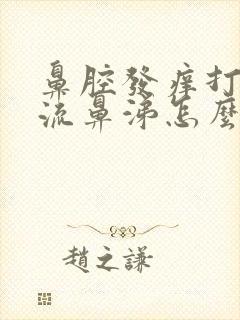 鼻腔發痒打
流鼻涕怎麼
趙之謙